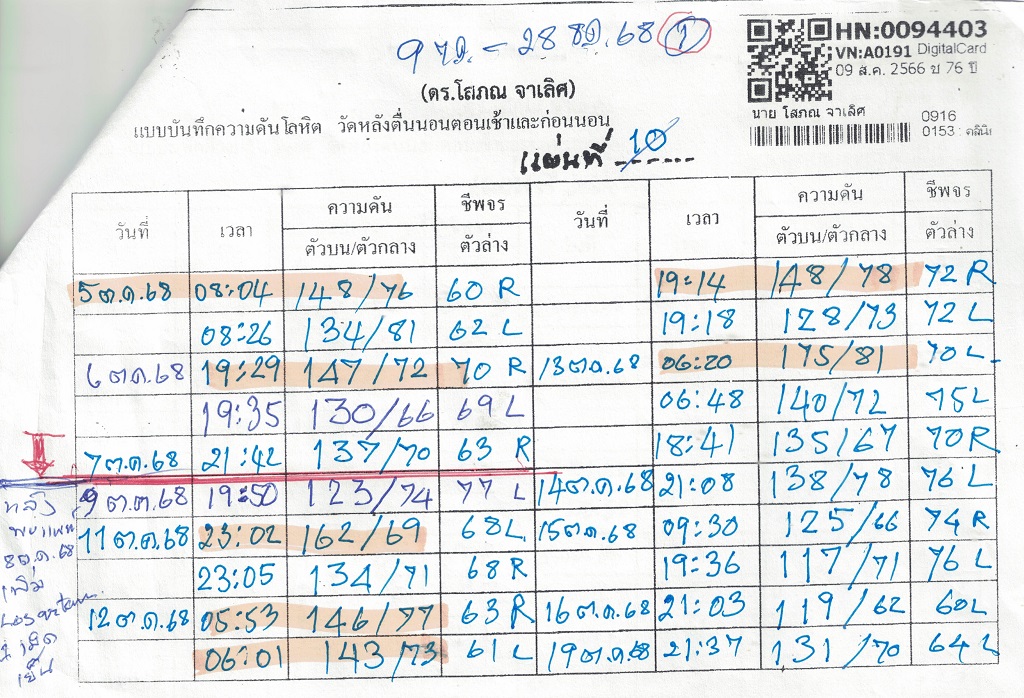 9 - 28 68 1
HN:0094403
VN:A0191 DigitalCard
09 ส.ค. 2566 ช 76 ปี
(ดร.โสภณ จาเลิศ)
นาย โสภณ จาเลิศ
0916
0153 : คลินิ
แบบบันทึกความดันโลหิต วัดหลังตื่นนอนตอนเช้าและก่อนนอน
แผ่นที่ 10
วันที่ เวลา ความดัน ชีพจร วันที่ เวลา ความดัน ชีพจร
ตัวบน/ตัวกลาง ตัวล่าง ตัวบน/ตัวกลาง ตัวล่าง
5 ต.ค.68 08:04 148/76 60 R 19:14 148/78 72 R
08:26 134/81 62 L 19:18 128/73 72 L
6 ต.ค.68 19:29 147/72 70 R 13 ต.ค.68 06:20 175/81 70 L
19:35 130/66 69 L 06:48 140/72 75 L
7 ต.ค.68 21:42 137/70 63 R 18:41 135/67 70 R
9 ต.ค.68 19:50 123/74 77 L 14 ต.ค.68 21:08 138/78 76 L
11 ต.ค.68 23:02 162/69 68 L 15 ต.ค.68 09:30 125/66 74 R
23:05 134/71 68 R 19:36 117/71 76 L
12 ต.ค.68 05:53 146/77 63 R 16 ต.ค.68 21:03 119/62 60 L
06:01 143/73 61 L 19 ต.ค.68 21:37 131/70 64 L
หลัง
พบแพทย์
8 ต.ค.68
เพิ่ม
Losartan
1 เม็ด
เย็น